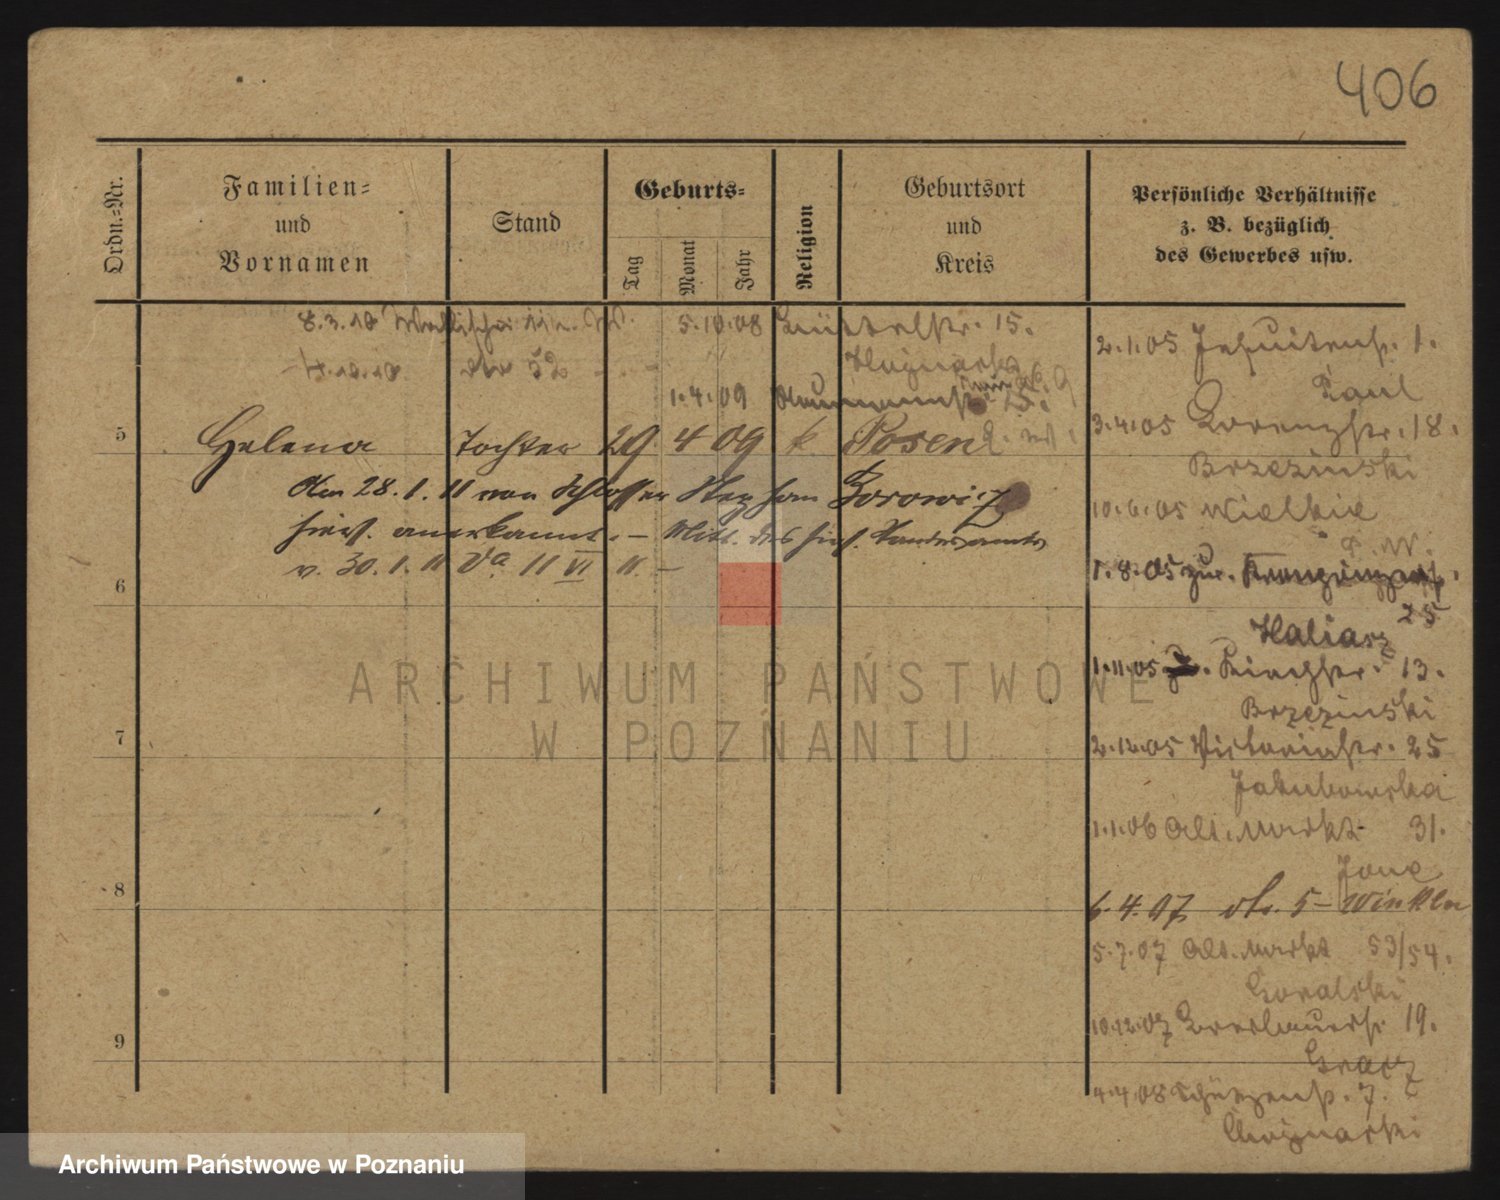 406
Ordn.=Nr.
Familien=
und
Vornamen
Stand
Geburts=
Tag
Monat
Jahr
Religion
Geburtsort
und
Kreis
Persönliche Verhältnisse
z. B. bezüglich
des Gewerbes usw.
8.3.10 Wallischei
5.10.08 Büttelstr. 15.
1.4.09
5 Helena Tochter 29 4 09 k. Posen
Am 28. 1. 11 von Schlosser Stephan Borowicz
hiers. anerkannt. – Mitt. des hies. Standesamts
v. 30. 1. 11 Va 11 VI 11. –
6
7
8
9
2.1.05 Jesuitenstr. 1.
Paul
3.4.05 Lorenzstr. 18.
Brzezinski
10.6.05 Wielkie
1.8.05 zur.
25
Haliasz
1.11.05 Kirchstr. 13.
Brzezinski
2.12.05 Victoriastr. 25
Jakubowska
1.1.06 Alt. Markt 31.
6.4.07 do. 5 – Winkler
5.7.07 Alt. Markt 53/54.
Goralski
10.12.07 Breslauerstr. 19.
Gracz
4.4.08 Schützenstr. 7.
Chojnacki
ARCHIWUM PAŃSTWOWE
W POZNANIU
Archiwum Państwowe w Poznaniu